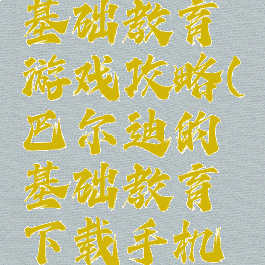 基础教育
游戏攻略(
巴尔迪的
基础教育
下载手机